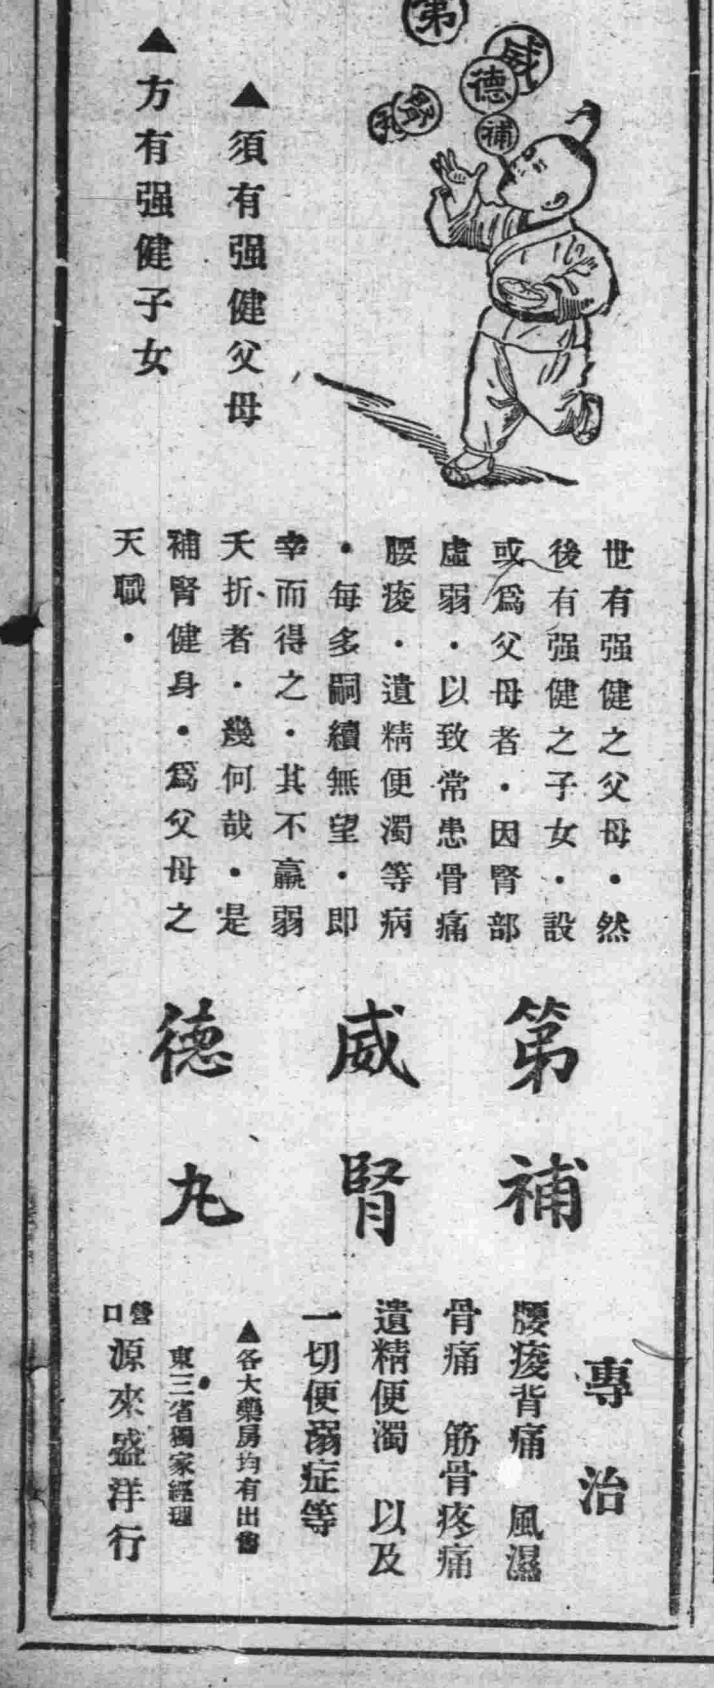 第
威
德
補
腎
丸
▲須有强健父母
▲方有强健子女
世有强健之父母・然
後有强健之子女・設
或爲父母者・因腎部
虛弱・以致常患骨痛
腰痠・遺精便濁等病
・每多嗣續無望・即
幸而得之・其不羸弱
夭折者・幾何哉・是
補腎健身・爲父母之
天職・
第威德
補腎丸
專治
腰痠背痛 風濕
骨痛 筋骨疼痛
遺精便濁 以及
一切便溺症等
▲各大藥房均有出售
東三省獨家經理
營口 源來盛洋行